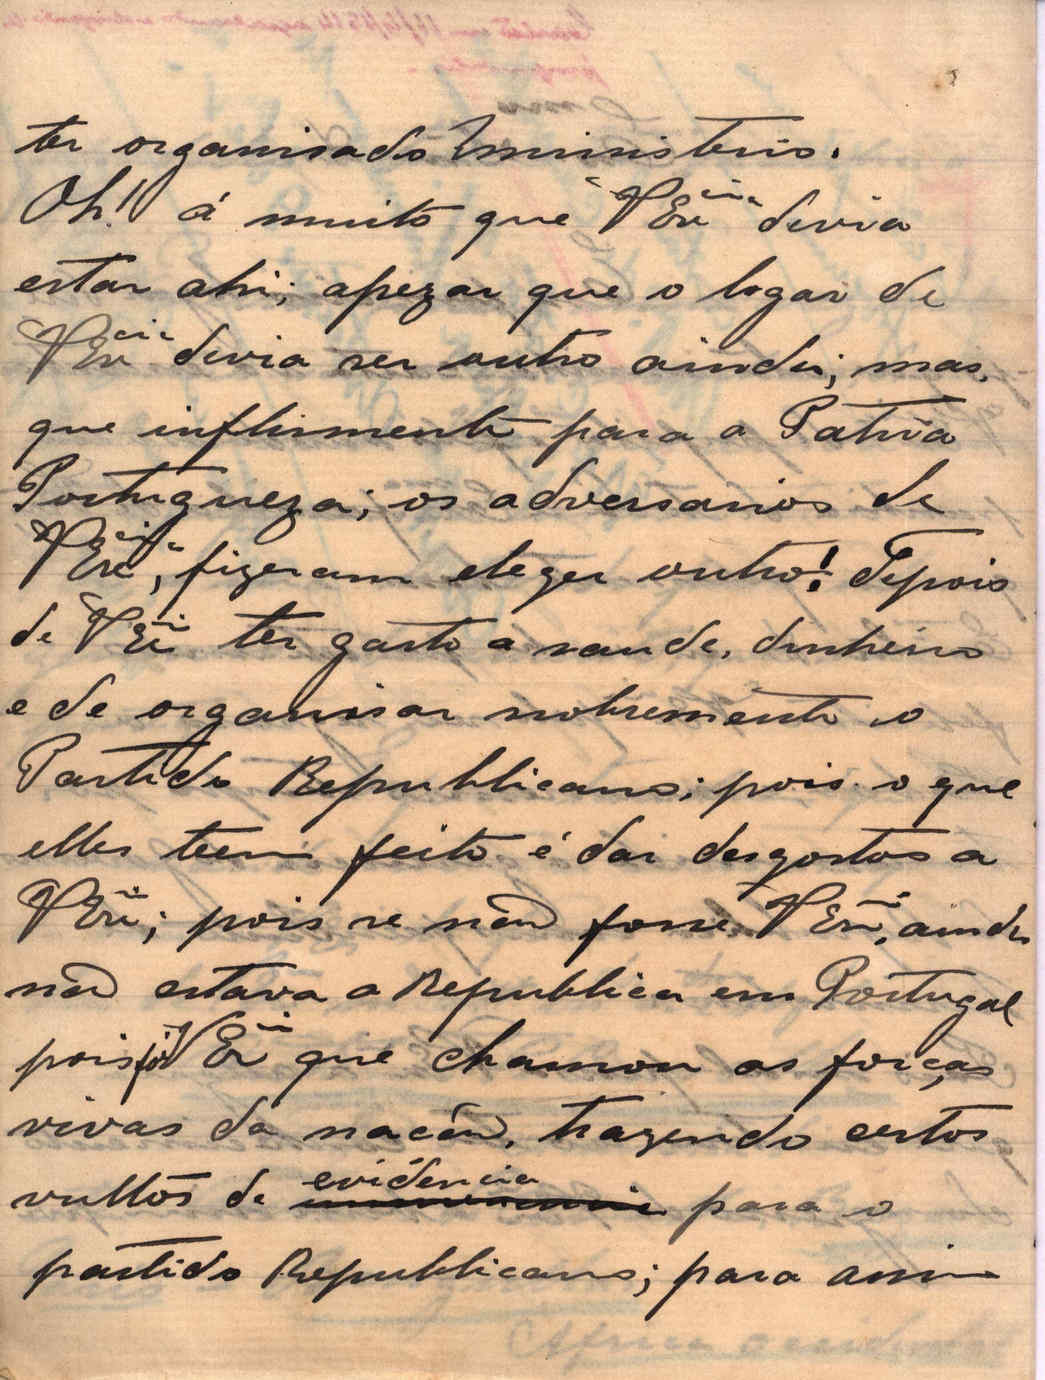 ter organisado Ministerio.
Oh! á muito que VExcia devia
estar ahi; apezar que o logar de
VExcia devia ser outro ainda; mas,
que inflismente para a Patria
Portugueza; os adversarios de
VExcia, fizeram eleger outro! Depois
de VExcia ter gasto a saude, dinheiro
e de organisar nobremente o
Partido Republicano; pois o que
elles teem feito é dar desgostos a
VExcia; pois se não fosse VExcia, ainda
não estava a Republica em Portugal
pois foi VExcia que chamou as forças
vivas da nacão, trazendo certos
vultos de evidencia para o
partido Republicano; para assim